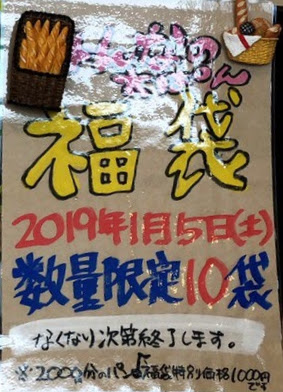 福袋
2019年1月5日(土)
数量限定10袋
なくなり次第終了します。
※2000円分のパン 福袋特別価格1000円です